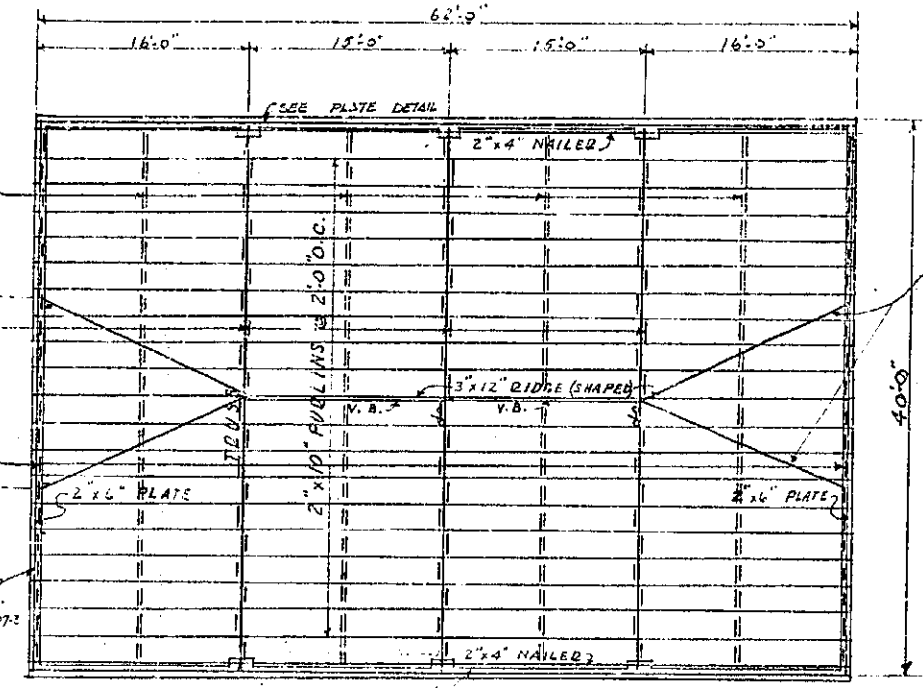 62'-0"
16'-0" 15'-0" 15'-0" 16'-0"
SEE PLATE DETAIL
2"x4" NAILER
2"x10" PURLINS @ 2'-0" O.C.
TRUSS
3"x12" RIDGE (SHAPED)
V.B. V.B.
40'-0"
2"x6" PLATE
2"x6" PLATE
2"x4" NAILER